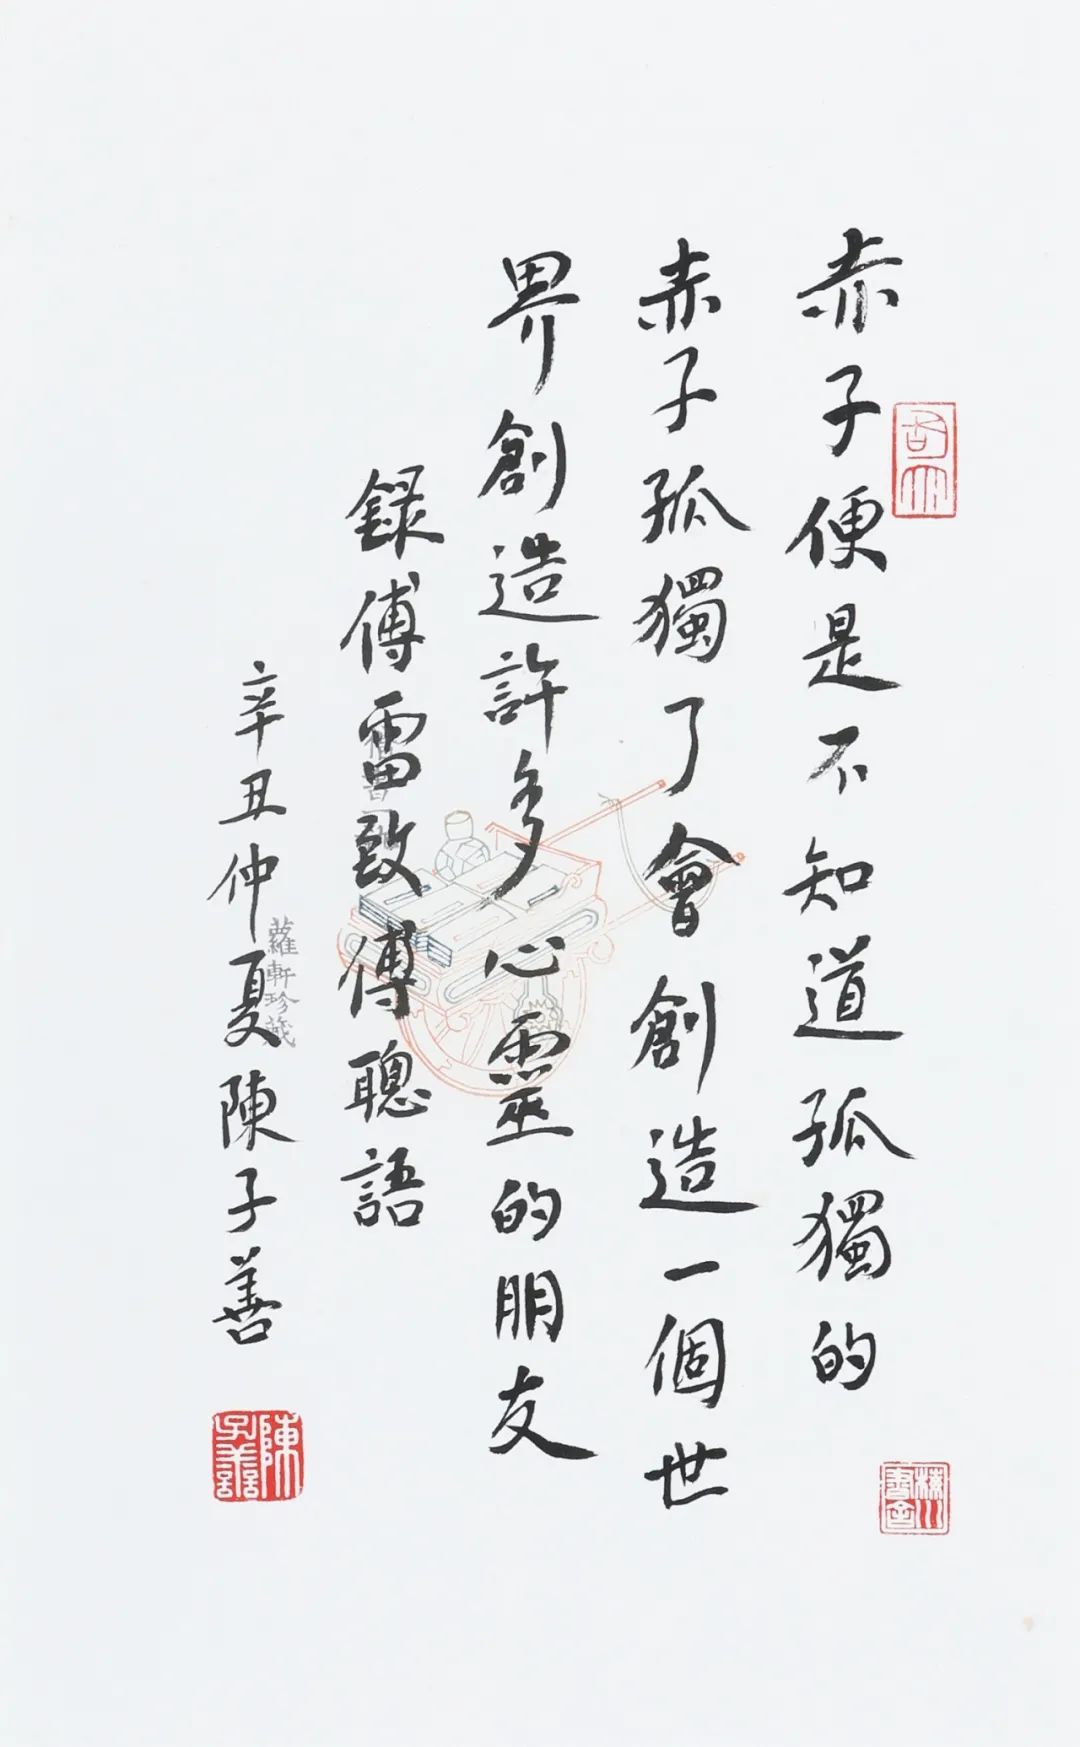 赤子便是不知道孤獨的
赤子孤獨了會創造一個世
界創造許多心靈的朋友
録傅雷致傅聰語
辛丑仲夏陳子善
蘿軒珍藏
陳子善